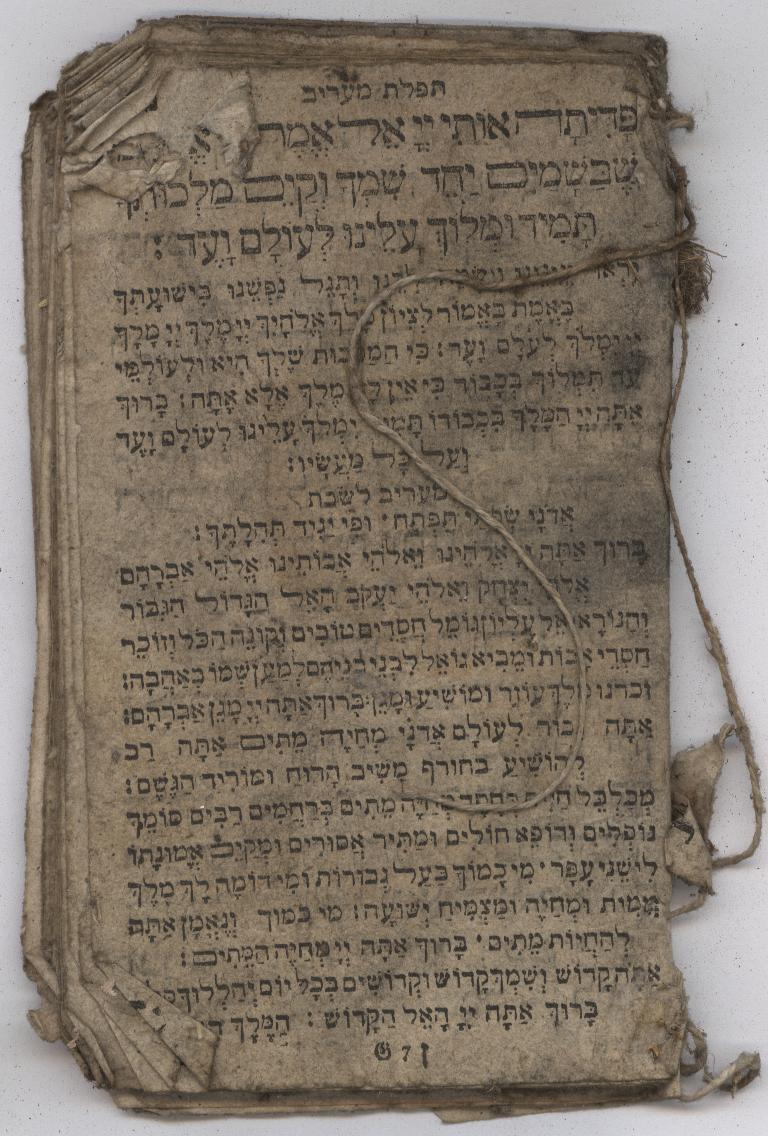 תפלת מעריב
פדיתה אותי יי אל אמת
שבשמים יחד שמך וקים מלכותך
תמיד ומלוך עלינו לעולם ועד :
ותגל נפשנו בישועתך
באמת באמור לציון מלך אלהיך יי מלך יי מלך
יי ימלך לעלם ועד : כי המלכות שלך היא ולעולמי
עד תמלוך בכבוד כי אין לנו מלך אלא אתה : ברוך
אתה יי המלך בכבודו תמיד ימלך עלינו לעולם ועד
ועל כל מעשיו :
מעריב לשבת
אדני שפתי תפתח · ופי יגיד תהלתך :
ברוך אתה יי אלהינו ואלהי אבותינו אלהי אברהם
אלהי יצחק ואלהי יעקב האל הגדול הגבור
והנורא אל עליון גומל חסדים טובים וקונה הכל וזוכר
חסדי אבות ומביא גואל לבני בניהם למען שמו באהבה :
זכרנו מלך עוזר ומושיע ומגן · ברוך אתה יי מגן אברהם :
אתה גבור לעולם אדני מחיה מתים אתה רב
להושיע בחורף משיב הרוח ומוריד הגשם :
מכלכל חיים בחסד מחיה מתים ברחמים רבים סומך
נופלים ורופא חולים ומתיר אסורים ומקים אמונתו
לישני עפר · מי כמוך בעל גבורות ומי דומה לך מלך
ממית ומחיה ומצמיח ישועה : מי כמוך ונאמן אתה
להחיות מתים · ברוך אתה יי מחיה המתים :
אתה קדוש ושמך קדוש וקדושים בכל יום יהללוך
ברוך אתה יי האל הקדוש : המלך
ז 7